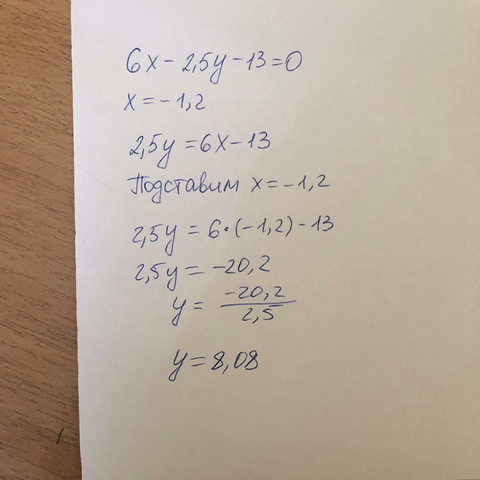 6x - 2,5y - 13 = 0
x = -1,2
2,5y = 6x - 13
Подставим x = -1,2
2,5y = 6 · (-1,2) - 13
2,5y = -20,2
y = -20,2 / 2,5
y = 8,08